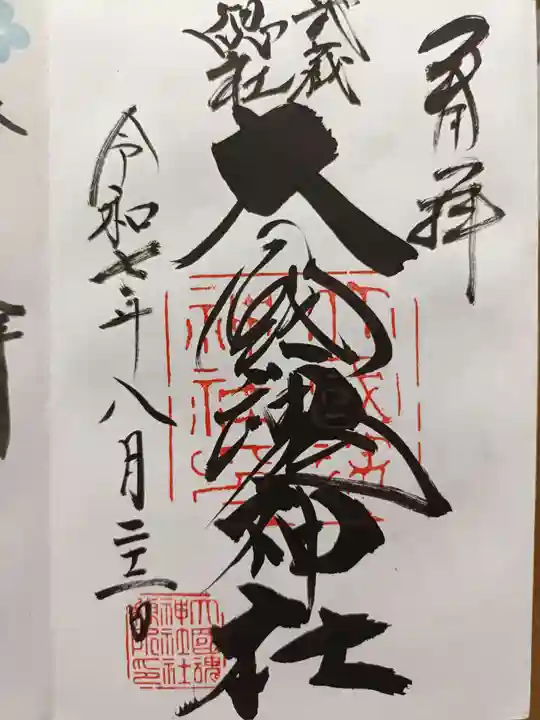 奉拝
武蔵
總社
大國魂神社
令和七年八月二十三日
大國魂神社社務所印